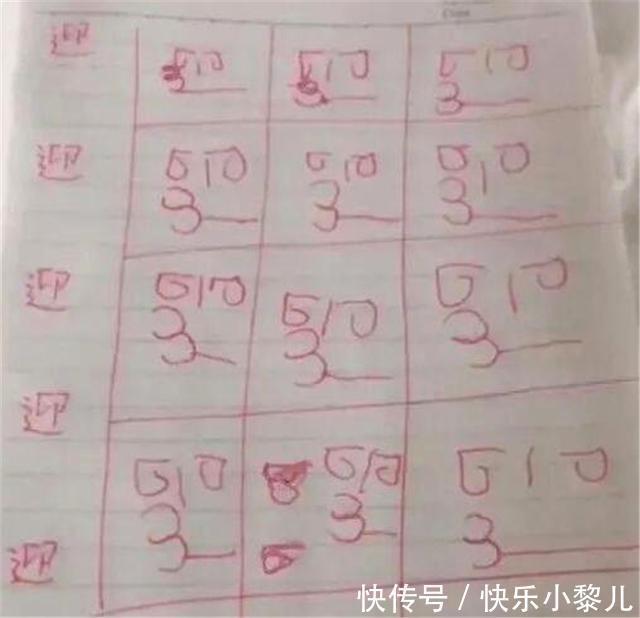 迎 迎 迎 迎
迎 迎 迎 迎
迎 迎 迎 迎
迎
迎 迎 迎
迎
快传号 / 快乐小黎儿